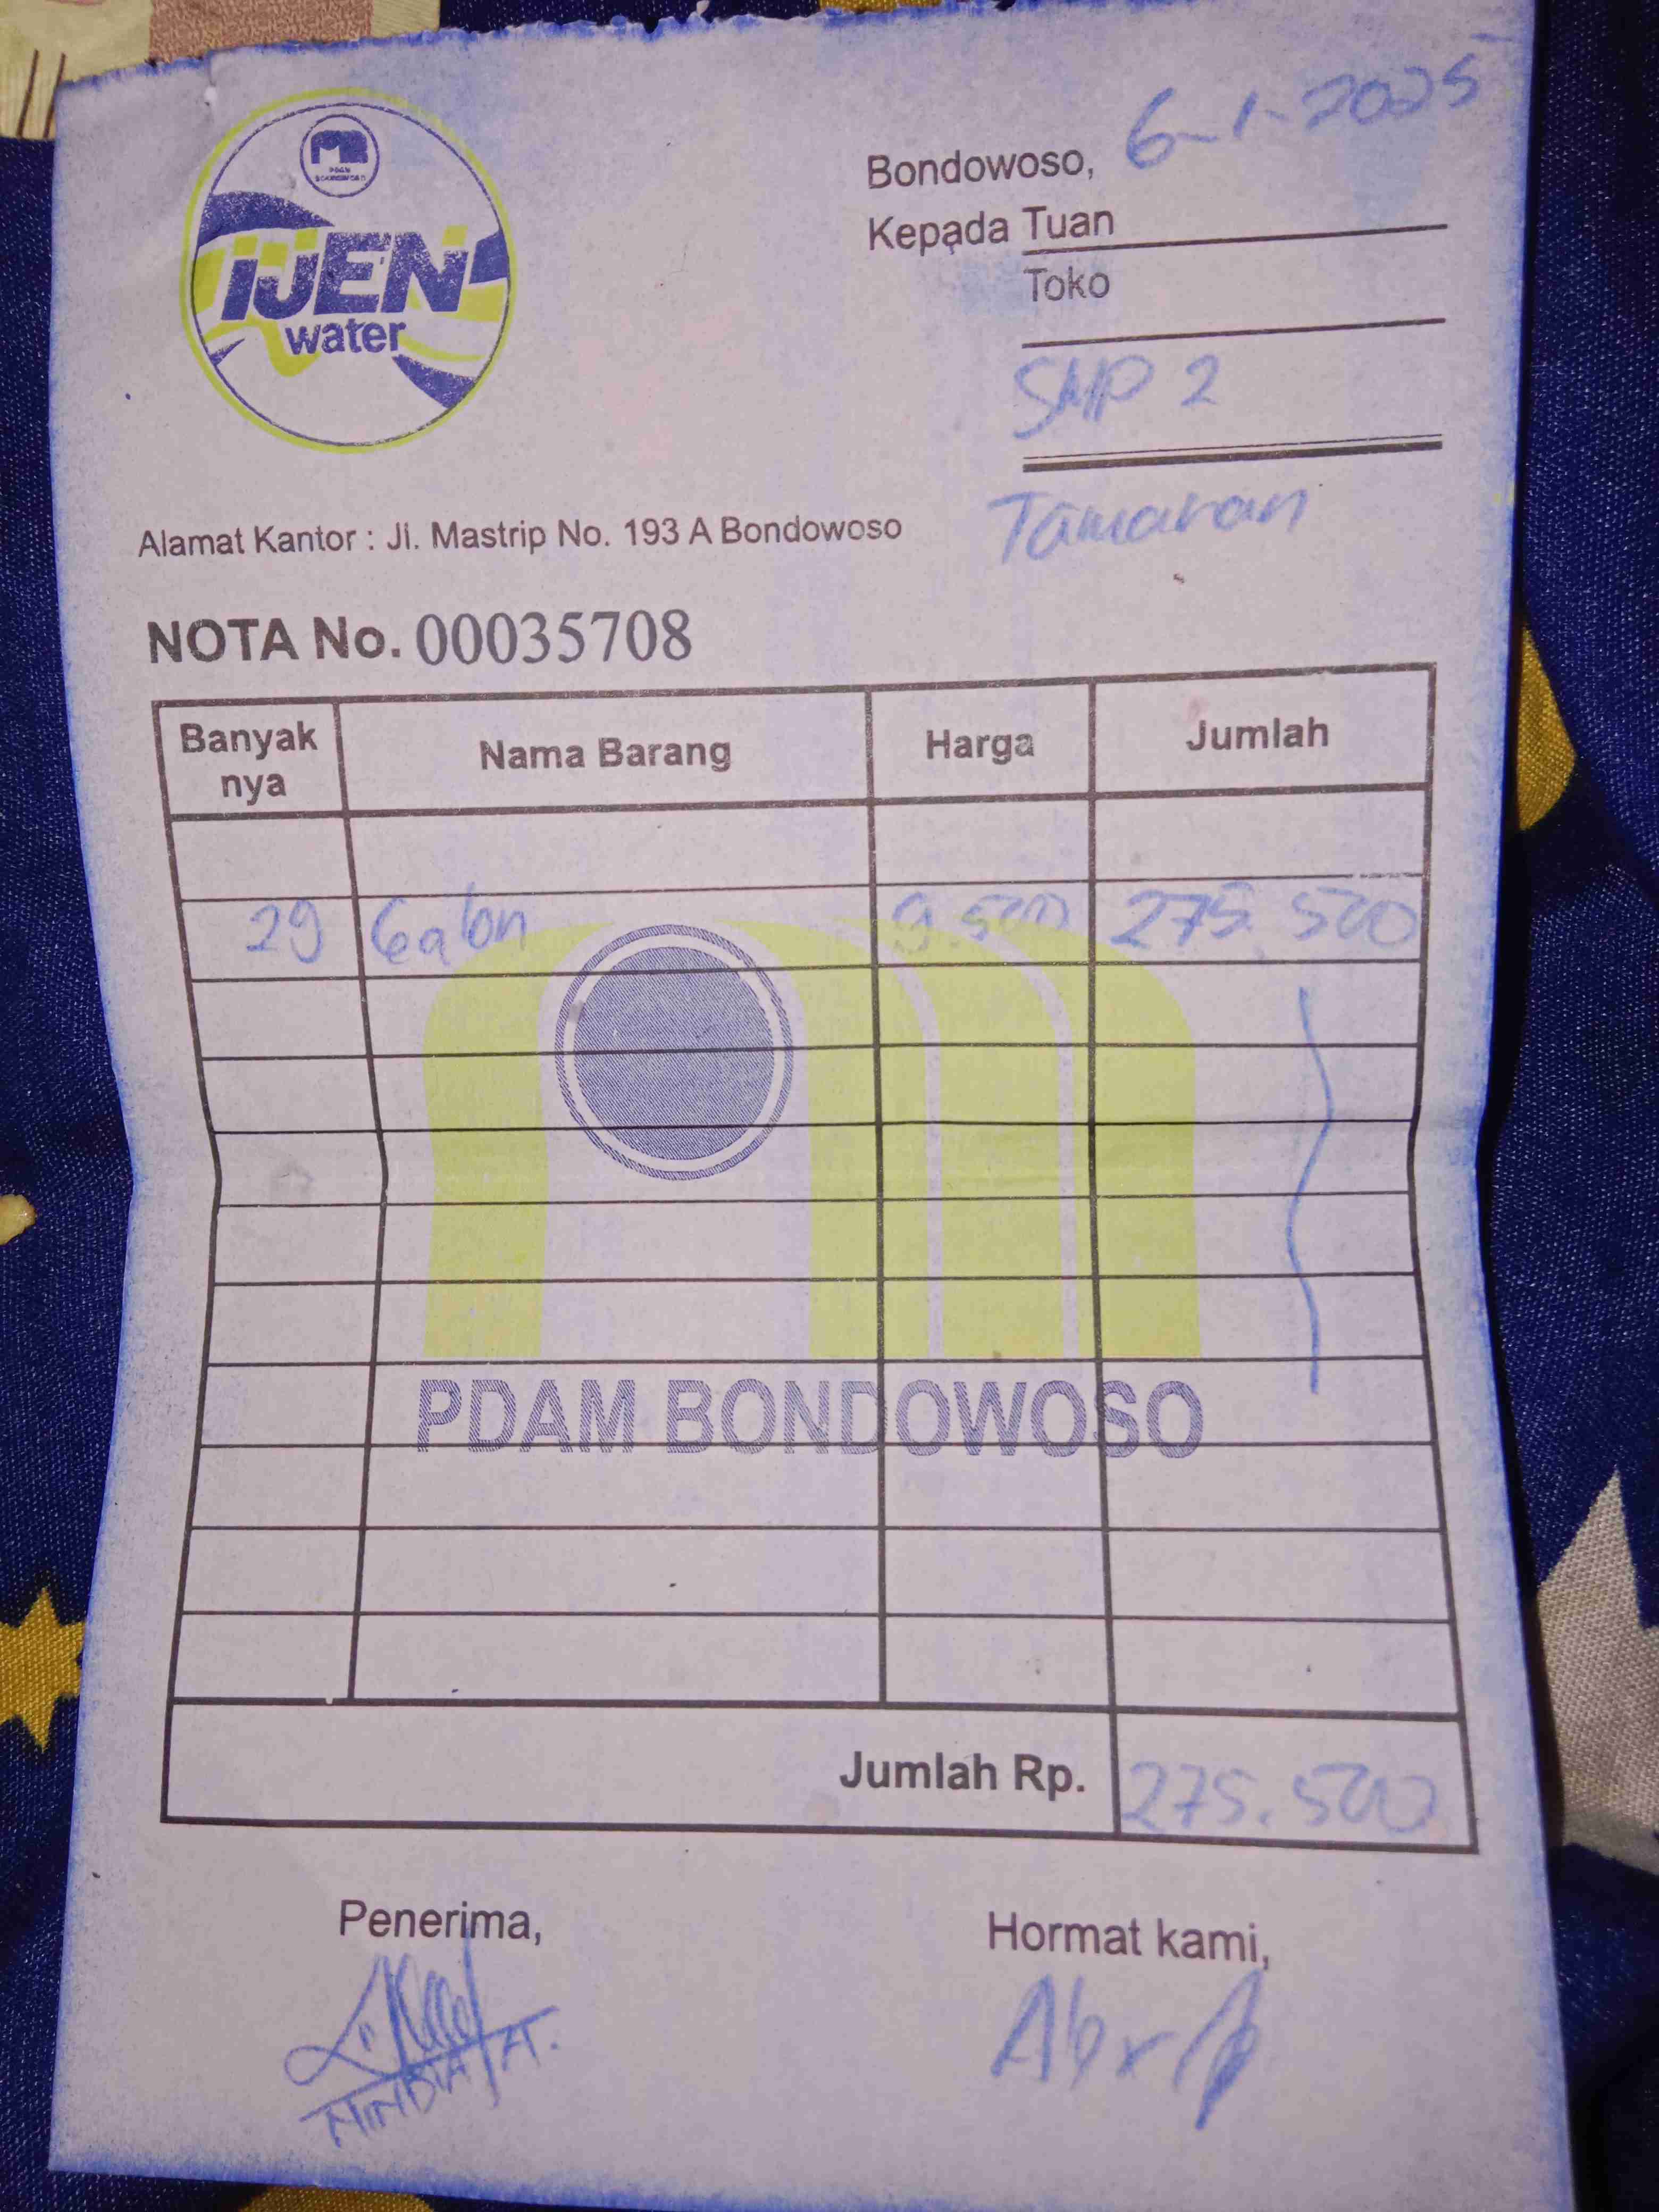 PDAM
BONDOWOSO
iJEN
water
Bondowoso, 6-1-2025
Kepada Tuan
Toko
SMP 2
Tamanan
Alamat Kantor : Jl. Mastrip No. 193 A Bondowoso
NOTA No. 00035708
Banyak nya Nama Barang Harga Jumlah
29 Galon 9.500 275.500
PDAM BONDOWOSO
Jumlah Rp. 275.500
Penerima, Hormat kami,
NINDIA A.